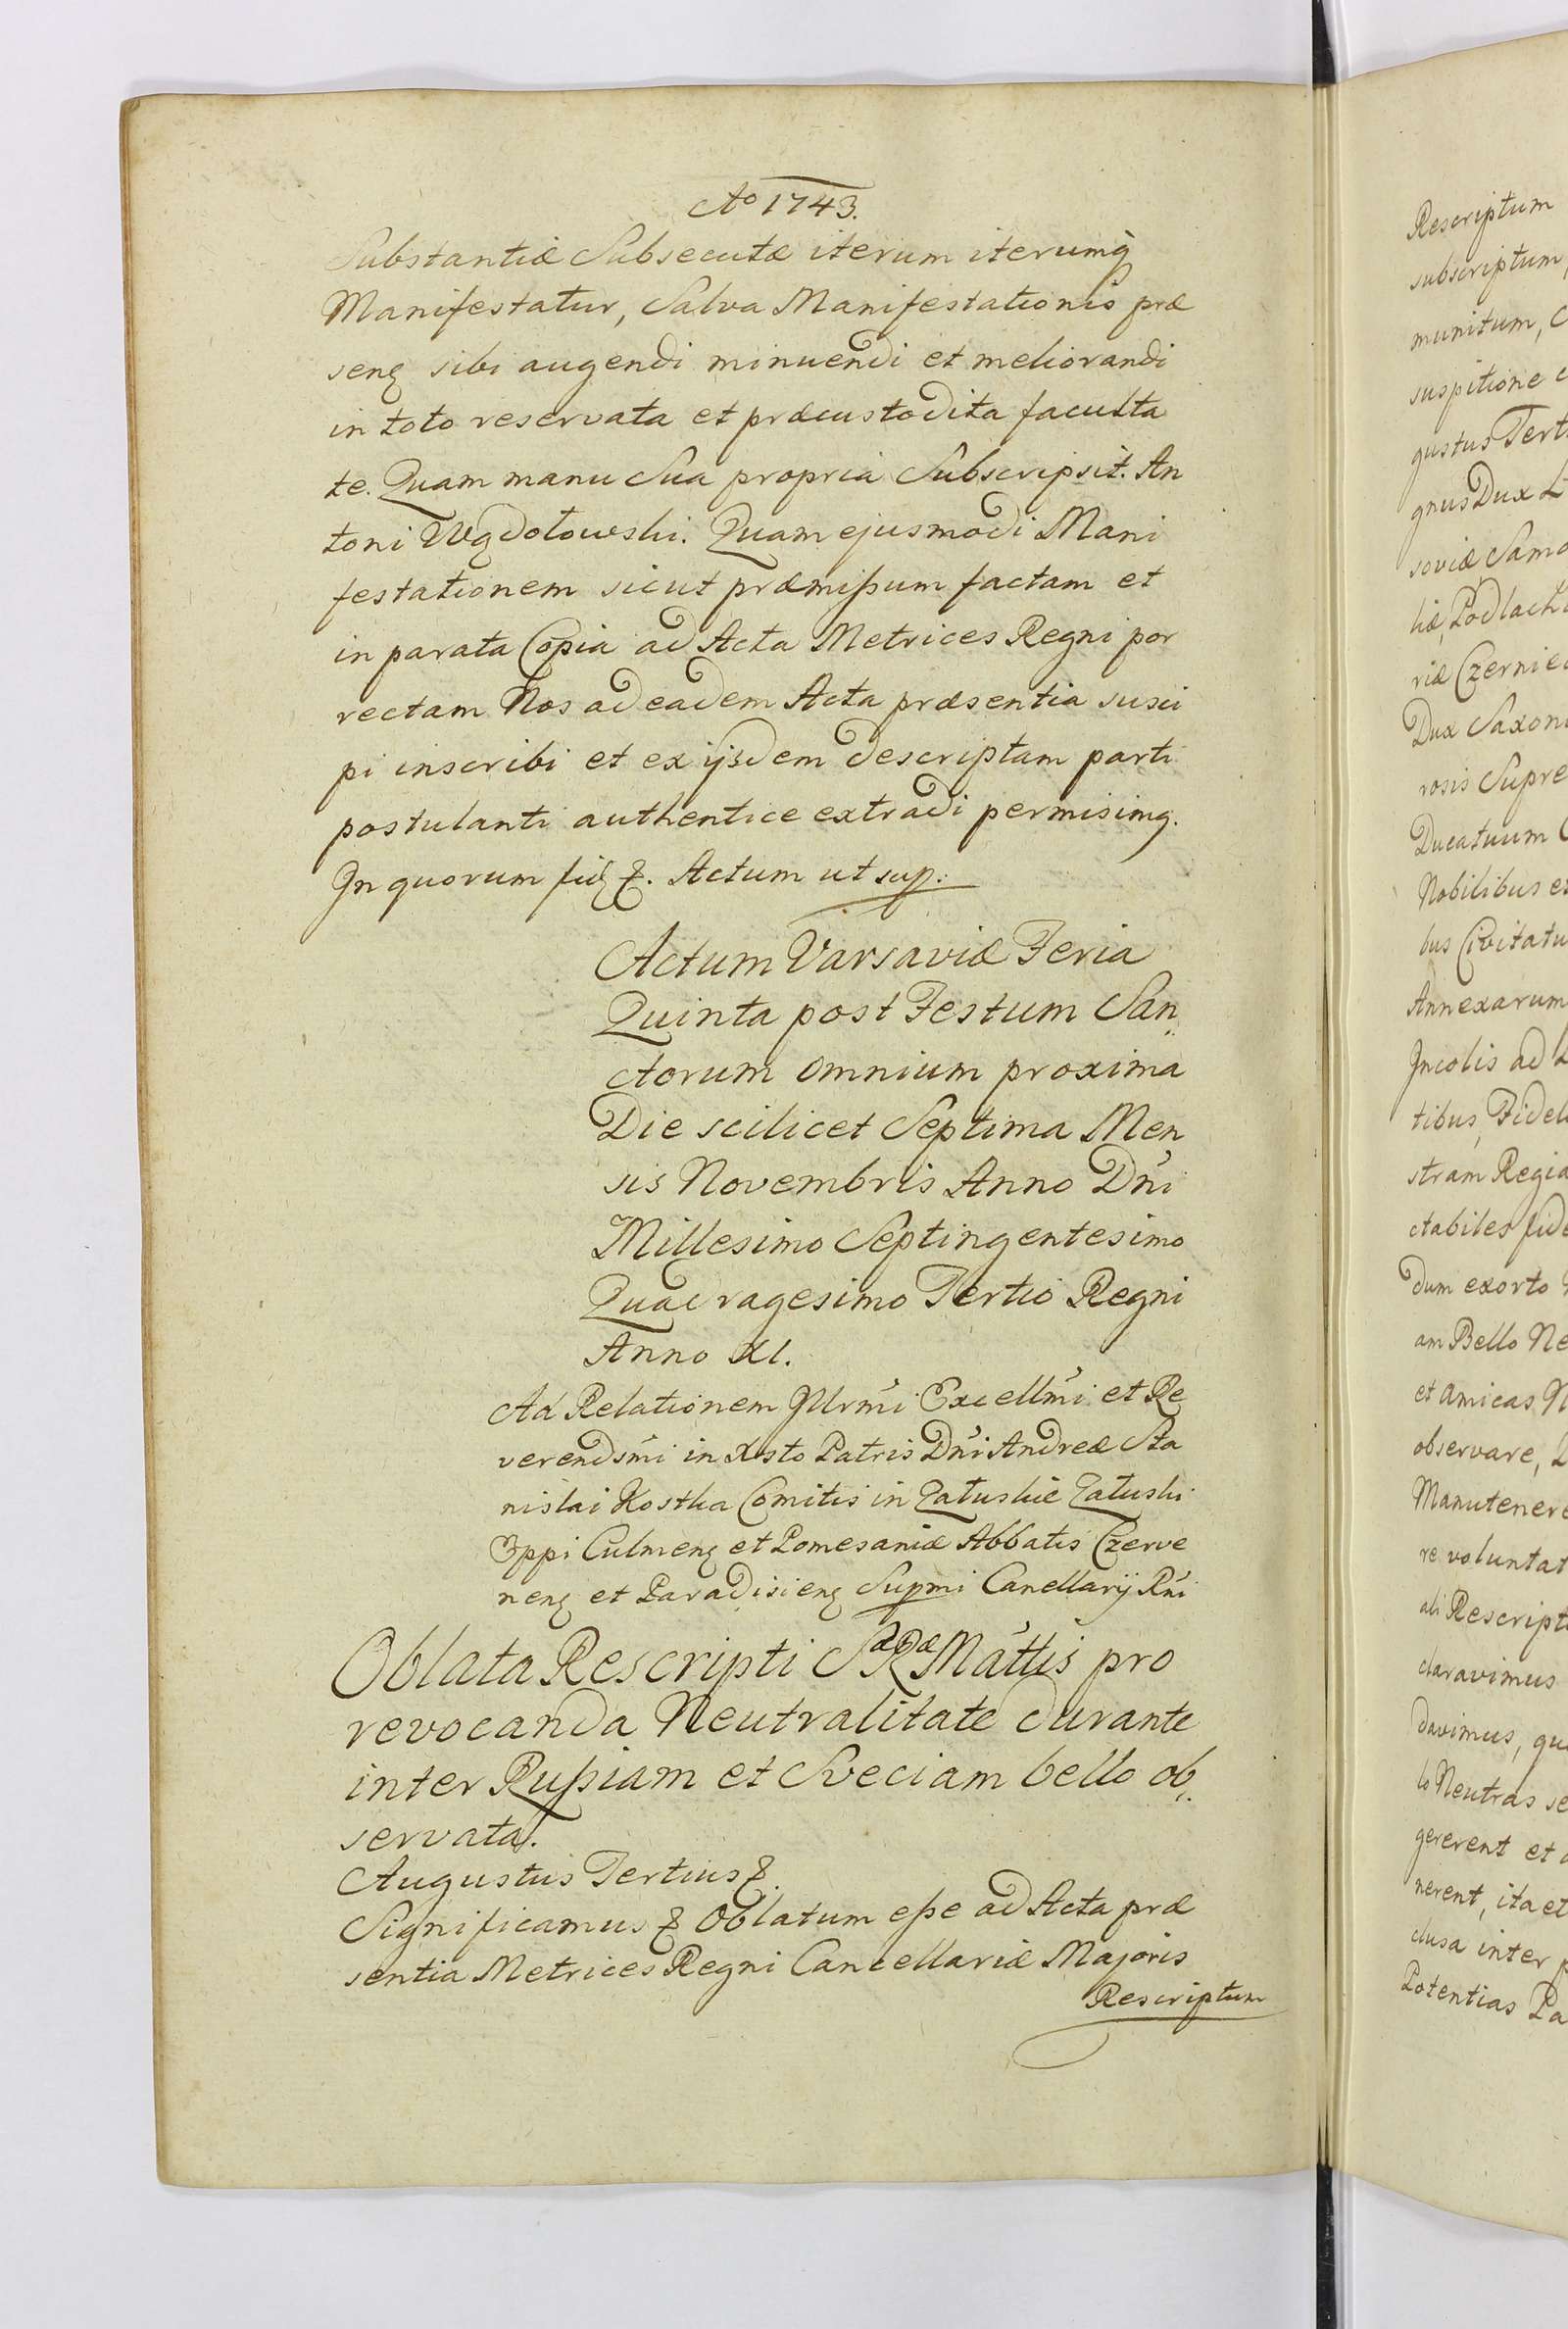 Ao 1743.
Substantiæ Subsecutæ iterum iterumq
Manifestatur, Salva Manifestationis præ
senq sibi augendi minuendi et meliorandi
in toto reservata et præcustodita faculta
te. Quam manu Sua propria Subscripsit. An
toni Wgdołowski. Quam ejusmodi Mani
festationem sicut præmißum factam et
in parata Copia ad Acta Metrices Regni por
rectam Nos ad eadem Acta præsentia susci
pi inscribi et ex ijsdem descriptam parti
postulanti authentice extradi permisimq.
In quorum fid. Actum ut sup.
Actum Varsaviæ Feria
Quinta post Festum San
ctorum omnium proxima
Die scilicet Septima Men
sis Novembris Anno Dni
Millesimo Septingentesimo
Quadragesimo Tertio Regni
Anno XI.
Ad Relationem Illrmi Excellmi et Re
verendsmi in Xsto Patris Dni Andreæ Sta
nislai Kostka Comitis in Załuskie Załuski
Eppi Culmenq et Pomesaniæ Abbatis Czerve
nenq et Paradisienq Supmi Canellarij Rni
Oblata Rescripti SæRæ Mattis pro
revocanda Neutralitate durante
inter Rußiam et Sveciam bello ob
servata.
Augustus Tertius
Significamus Oblatum eße ad Acta præ
sentia Metrices Regni Cancellariæ Majoris
Rescriptum
Rescriptum
subscriptum,
munitum,
suspitione
gustus Tert
gnus Dux L
soviæ Samo
liæ, Podlach
riæ Czernie
Dux Saxoni
rosis Supre
Ducatuum
Nobilibus
bus Civitatu
Annexarum
Incolis ad
tibus, Fidel
stram Regia
ctabiles fide
dum exorto
am Bello Ne
et amicas
observare,
Manutenere
re voluntat
ali Rescript
claravimus
davimus, qu
lo Neutras se
gererent et
nerent, ita et
clusa inter p
Potentias Pa